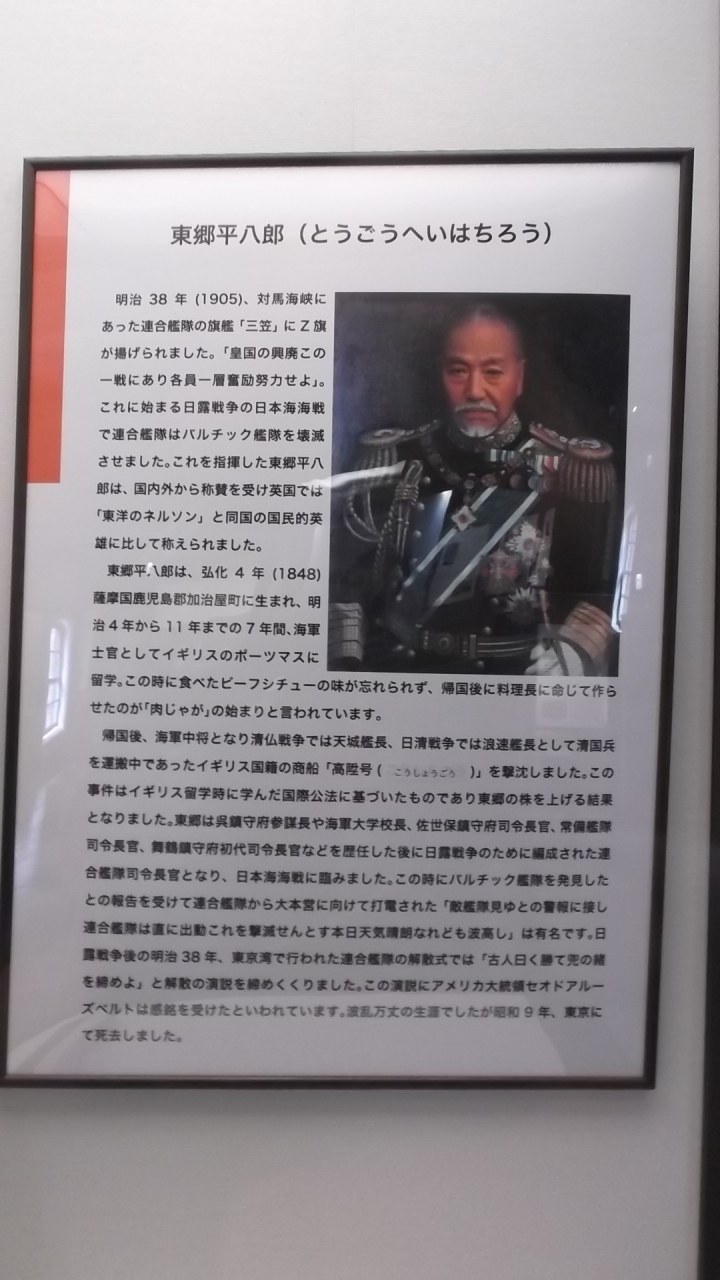 東郷平八郎（とうごうへいはちろう）
明治 38 年 (1905)、対馬海峡に
あった連合艦隊の旗艦「三笠」に Z 旗
が揚げられました。「皇国の興廃この
一戦にあり各員一層奮励努力せよ」。
これに始まる日露戦争の日本海海戦
で連合艦隊はバルチック艦隊を壊滅
させました。これを指揮した東郷平八
郎は、国内外から称賛を受け英国では
「東洋のネルソン」と同国の国民的英
雄に比して称えられました。
東郷平八郎は、弘化 4 年 (1848)
薩摩国鹿児島郡加治屋町に生まれ、明
治 4 年から 11 年までの 7 年間、海軍
士官としてイギリスのポーツマスに
留学。この時に食べたビーフシチューの味が忘れられず、帰国後に料理長に命じて作ら
せたのが「肉じゃが」の始まりと言われています。
帰国後、海軍中将となり清仏戦争では天城艦長、日清戦争では浪速艦長として清国兵
を運搬中であったイギリス国籍の商船「高陞号 (こうしょうごう)」を撃沈しました。この
事件はイギリス留学時に学んだ国際公法に基づいたものであり東郷の株を上げる結果
となりました。東郷は呉鎮守府参謀長や海軍大学校長、佐世保鎮守府司令長官、常備艦隊
司令長官、舞鶴鎮守府初代司令長官などを歴任した後に日露戦争のために編成された連
合艦隊司令長官となり、日本海海戦に臨みました。この時にバルチック艦隊を発見した
との報告を受けて連合艦隊から大本営に向けて打電された「敵艦隊見ゆとの警報に接し
連合艦隊は直に出動これを撃滅せんとす本日天気晴朗なれども波高し」は有名です。日
露戦争後の明治 38 年、東京湾で行われた連合艦隊の解散式では「古人曰く勝て兜の緒
を締めよ」と解散の演説を締めくくりました。この演説にアメリカ大統領セオドアルー
ズベルトは感銘を受けたといわれています。波乱万丈の生涯でしたが昭和 9 年、東京に
て死去しました。